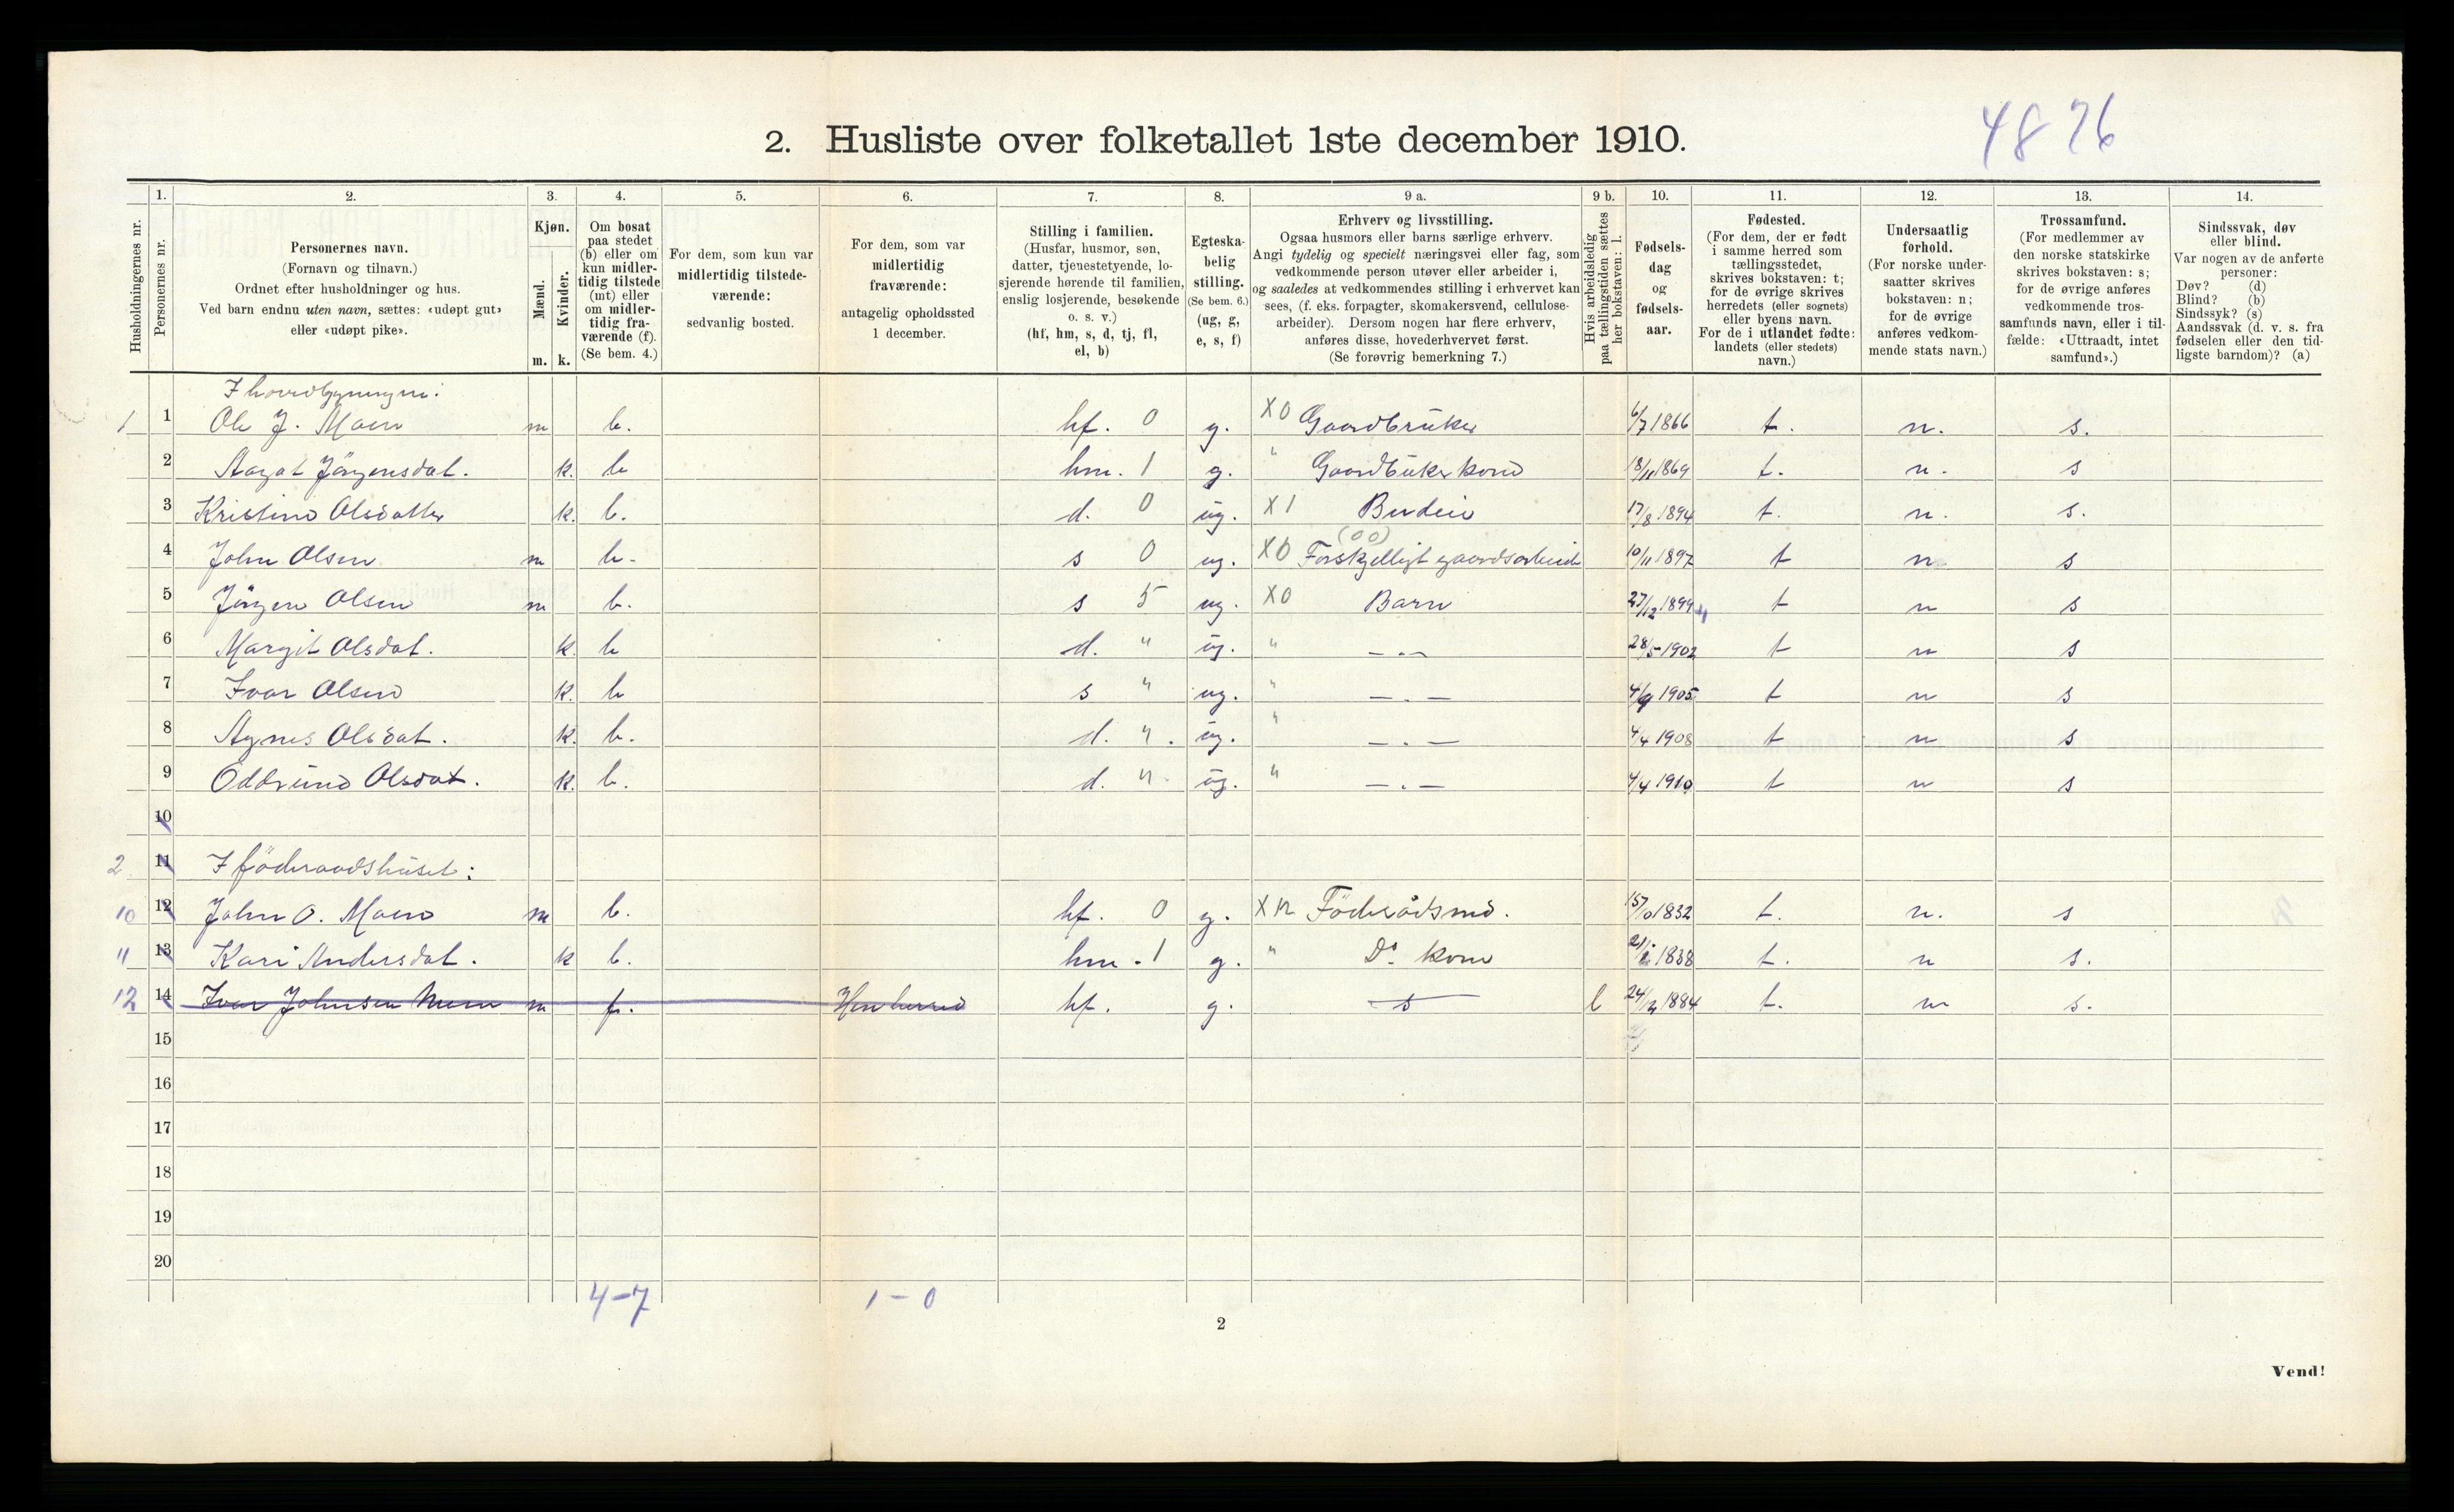 4876
2. Husliste over folketallet 1ste december 1910.
1. 2. 3. 4. 5. 6. 7. 8. 9 a. 9 b. 10. 11. 12. 13. 14.
Husholdningernes nr.
Personernes nr.
Personernes navn.
(Fornavn og tilnavn.)
Ordnet efter husholdninger og hus.
Ved barn endnu uten navn, sættes: «udøpt gut»
eller «udøpt pike».
Kjøn.
Mænd.
Kvinder.
m. k.
Om bosat
paa stedet
(b) eller om
kun midler-
tidig tilstede
(mt) eller
om midler-
tidig fra-
værende (f).
(Se bem. 4.)
For dem, som kun var
midlertidig tilstede-
værende:
sedvanlig bosted.
For dem, som var
midlertidig
fraværende:
antagelig opholdssted
1 december.
Stilling i familien.
(Husfar, husmor, søn,
datter, tjenestetyende, lo-
sjerende hørende til familien,
enslig losjerende, besøkende
o. s. v.)
(hf, hm, s, d, tj, fl,
el, b)
Egteska-
belig
stilling.
(Se bem. 6.)
(ug, g,
e, s, f)
Erhverv og livsstilling.
Ogsaa husmors eller barns særlige erhverv.
Angi tydelig og specielt næringsvei eller fag, som
vedkommende person utøver eller arbeider i,
og saaledes at vedkommendes stilling i erhvervet kan
sees, (f. eks. forpagter, skomakersvend, cellulose-
arbeider). Dersom nogen har flere erhverv,
anføres disse, hovederhvervet først.
(Se forøvrig bemerkning 7.)
Hvis arbeidsledig
paa tællingstiden sættes
her bokstaven: l.
Fødsels-
dag
og
fødsels-
aar.
Fødested.
(For dem, der er født
i samme herred som
tællingsstedet,
skrives bokstaven: t;
for de øvrige skrives
herredets (eller sognets)
eller byens navn.
For de i utlandet fødte:
landets (eller stedets)
navn.)
Undersaatlig
forhold.
(For norske under-
saatter skrives
bokstaven: n;
for de øvrige
anføres vedkom-
mende stats navn.)
Trossamfund.
(For medlemmer av
den norske statskirke
skrives bokstaven: s;
for de øvrige anføres
vedkommende tros-
samfunds navn, eller i til-
fælde: «Uttraadt, intet
samfund».)
Sindssvak, døv
eller blind.
Var nogen av de anførte
personer:
Døv? (d)
Blind? (b)
Sindssyk? (s)
Aandssvak (d. v. s. fra
fødselen eller den tid-
ligste barndom)? (a)
I hovedbygningen:
1 1 Ole J. Moen m b. hf. 0 g. X0 Gaardbruker 6/7 1866 t. n. s.
2 Aagot Jörgensdat. k. b hm. 1 g. " Gaardbrukerkone 18/11 1869 t. n. s
3 Kristine Olsdatter k. b. d. 0 ug. X1 Budeie 17/8 1894 t. n. s.
(00)
4 John Olsen m b. s 0 ug. X0 Forskjelligt gaardsarbeide 10/11 1897 t n s
5 Jörgen Olsen m b. s 5 ug. X0 Barn 27/12 1899 t n s
6 Margit Olsdat. k. b d. " ug. " —.— 28/5 1902 t n s
7 Ivar Olsen k. b s " ug. " —.— 4/9 1905 t n s
8 Agnes Olsdat. k. b. d. ". ug. " —.— 4/4 1908 t n s
9 Oddrund Olsdat. k. b. d. " ug. " —.— 4/4 1910 t n s
10
2 11 I föderaadshuset:
10 12 John O. Moen m b. hf. 0 g. X Föderådsmd. 1832 t. n. s
11 13 Kari Andersdat. k b. hm. 1 g. " Do kone 1838 t. n s.
12 14 Ivar Johnsen m f. hf. g. s l 1884 t. n s.
15
16
17
18
19
20
4-7 1-0
2
Vend!